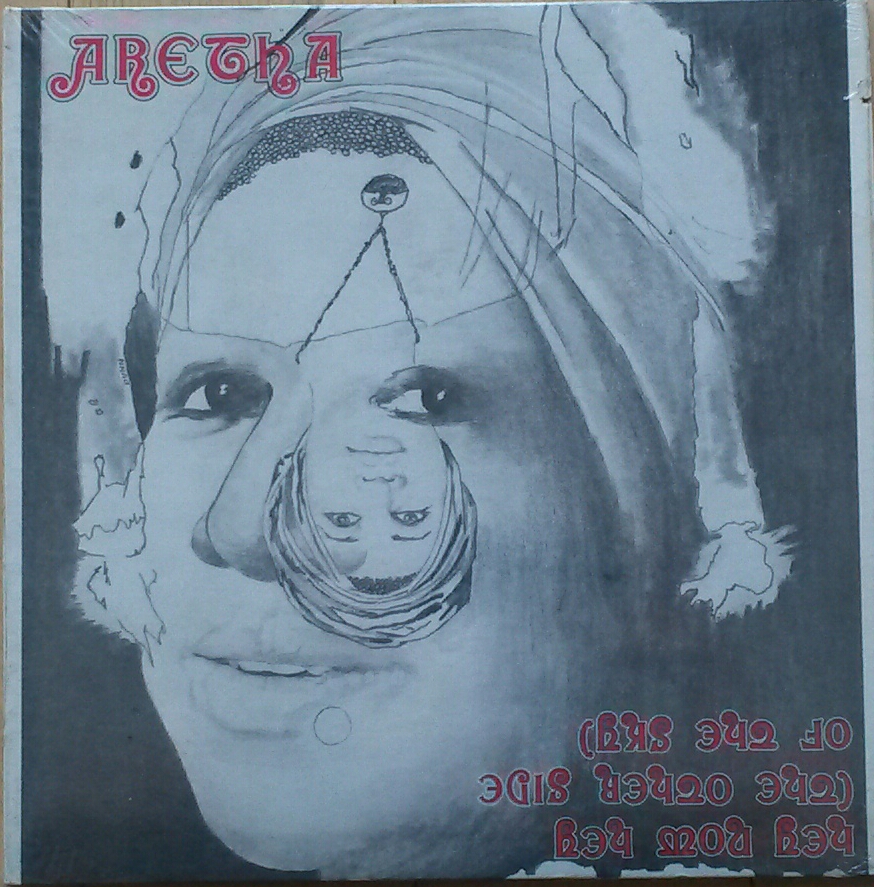 ARETHA
HEY NOW HEY
(THE OTHER SIDE
OF THE SKY)